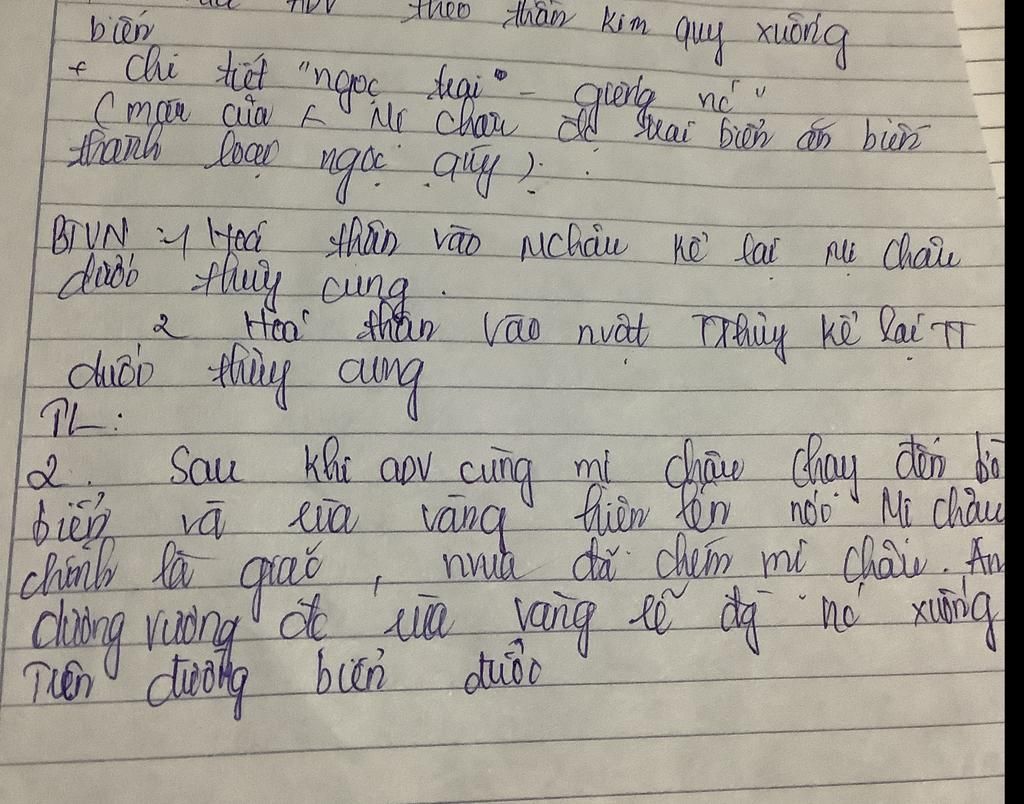 ADV theo thần kim quy xuống
biển
+ chi tiết "ngọc trai" - giếng nc"
( máu của Mị châu đc trai biển ăn biến
thành loại ngọc quý ).
BTVN :1 Hoá thân vào MChâu kể lại Mị châu
dưới thuỷ cung.
2 Hoá thân vào nvật TThủy kể lại TT
dưới thủy cung
TL:
2. Sau khi ADV cùng mị châu chạy đến bờ
biển và rùa vàng hiện lên nói Mị Châu
chính là giặc, nvua đã chém mị châu. An
dương vương đc rùa vàng rẽ đg nc xuống
Trên đường biển dưới